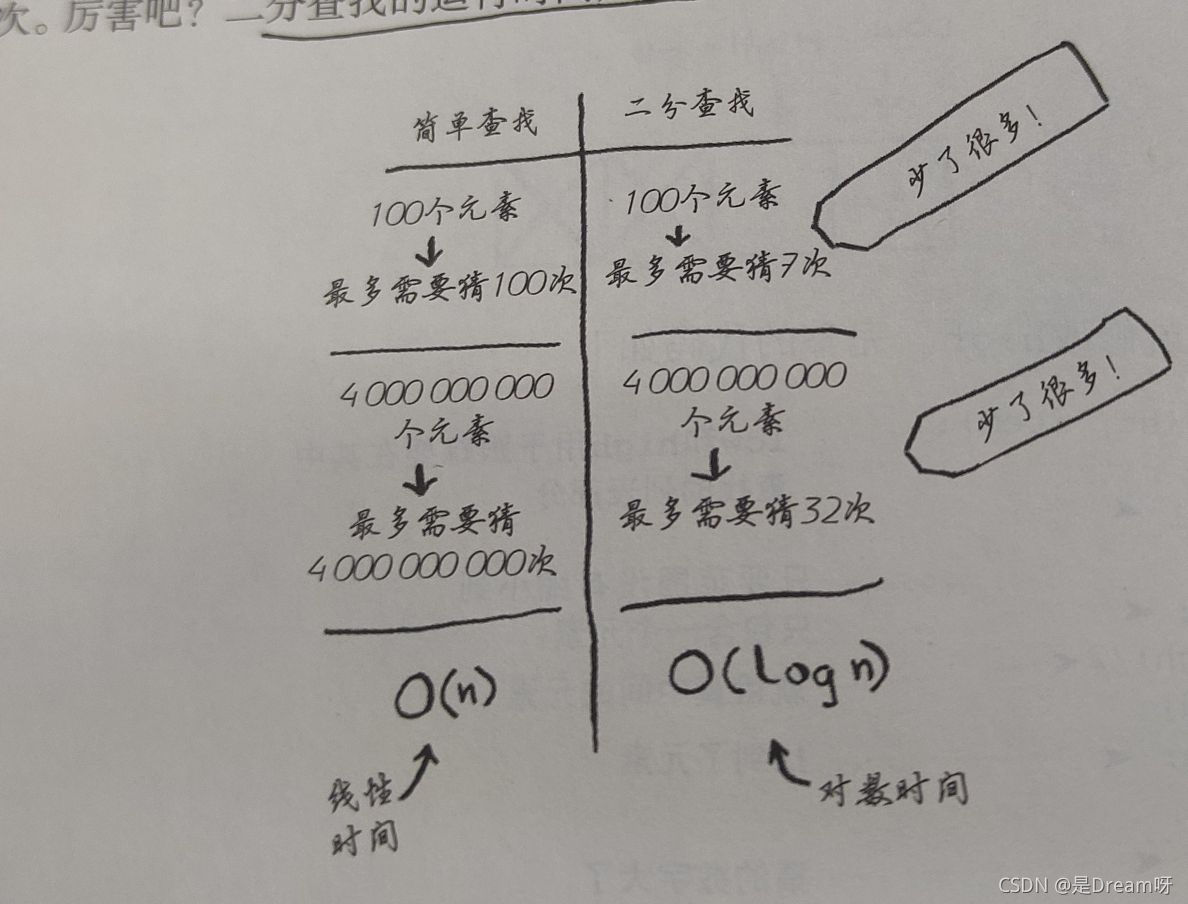 次。厉害吧？二分查找的运行时间
简单查找
二分查找
少了很多！
100个元素
↓
最多需要猜100次
100个元素
↓
最多需要猜7次
少了很多！
4 000 000 000
个元素
↓
最多需要猜
4 000 000 000次
4 000 000 000
个元素
↓
最多需要猜32次
O(n)
O(log n)
线性
时间
对数时间
CSDN @是Dream呀